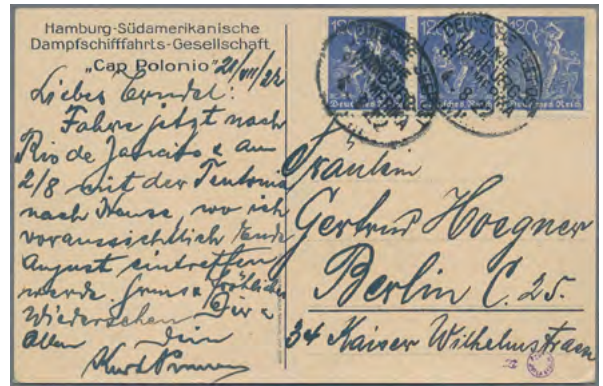 Hamburg-Südamerikanische
Dampfschifffahrts-Gesellschaft
„Cap Polonio"
Liebes
Fahre jetzt nach
Rio de Janeiro & am
2/8 mit der Teutonia
nach Hause, wo ich
voraussichtlich Ende
August eintreffen
werde. fröhliches
Wiedersehen Dir &
Allen Dein
Kurt
120 120 120
Deutsches Reich
DEUTSCHE SEEPOST
LINIE
HAMBURG-
SÜDAMERIKA
Fräulein
Gertrud Hoegner
Berlin C. 25.
34 Kaiser Wilhelmstrasse